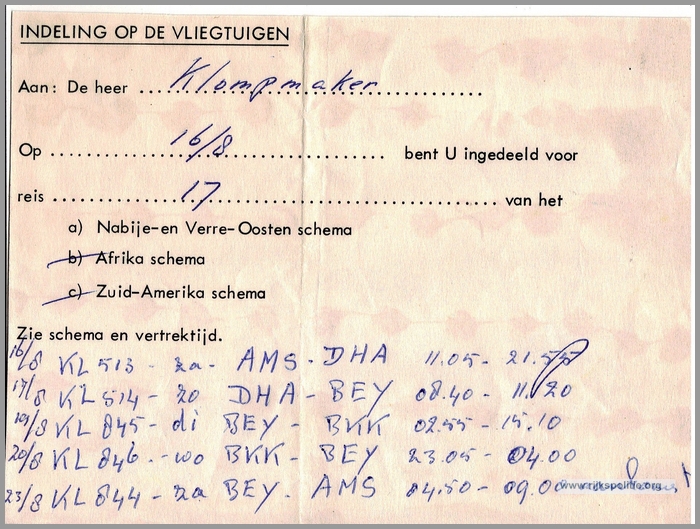 INDELING OP DE VLIEGTUIGEN
Aan: De heer Klompmaker
Op 16/8 bent U ingedeeld voor
reis 17 van het
a) Nabije-en Verre-Oosten schema
b) Afrika schema
c) Zuid-Amerika schema
Zie schema en vertrektijd.
16/8 KL 513 - za - AMS - DHA 11.05 - 21.55
17/8 KL 514 - zo DHA - BEY 08.40 - 11.20
19/8 KL 845 - di BEY - BKK 02.55 - 15.10
20/8 KL 846 - wo BKK - BEY 23.05 - 04.00
23/8 KL 844 - za BEY - AMS 04.50 - 09.00
www.rijkspolitie.org